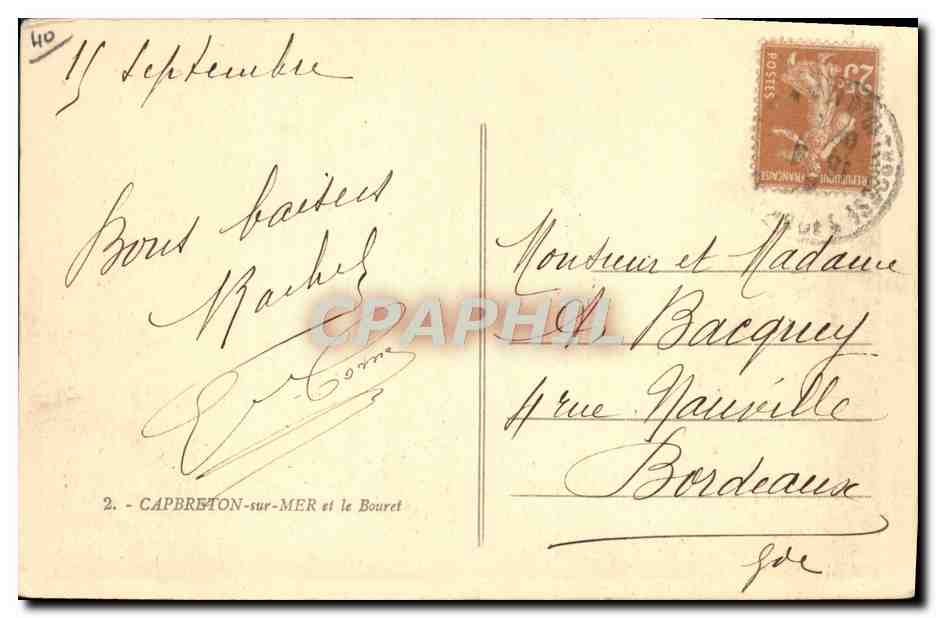 40
15 Septembre
Bons baisers
Rachel
2. - CAPBRETON-sur-MER et le Bouret
POSTES
25c
REPUBLIQUE FRANÇAISE
Monsieur et Madame
Bacquey
4 rue Nauville
Bordeaux
Gde
CPAPHIL